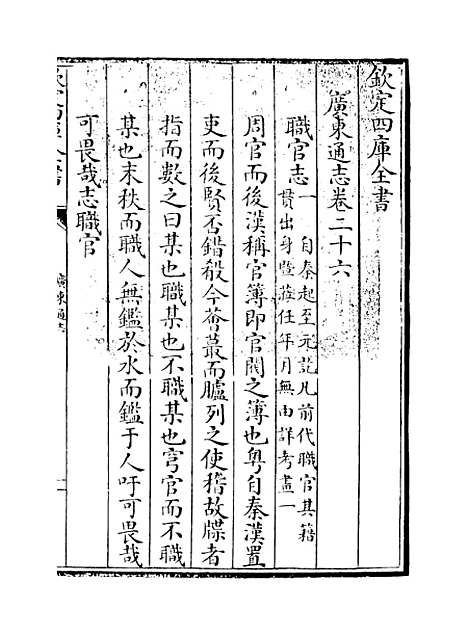 欽定四庫全書
廣東通志卷二十六
職官志一
自秦起至元訖凡前代職官其籍
貫出身曁蒞任年月無由詳考畫一
周官而後漢稱官簿即官閥之簿也粤自秦漢置
吏而後賢否錯殽今薈蕞而臚列之使稽故牒者
指而數之曰某也職某也不職某也穹官而不職
某也末秩而職人無鑑於水而鑑于人吁可畏哉
可畏哉志職官
廣東通志